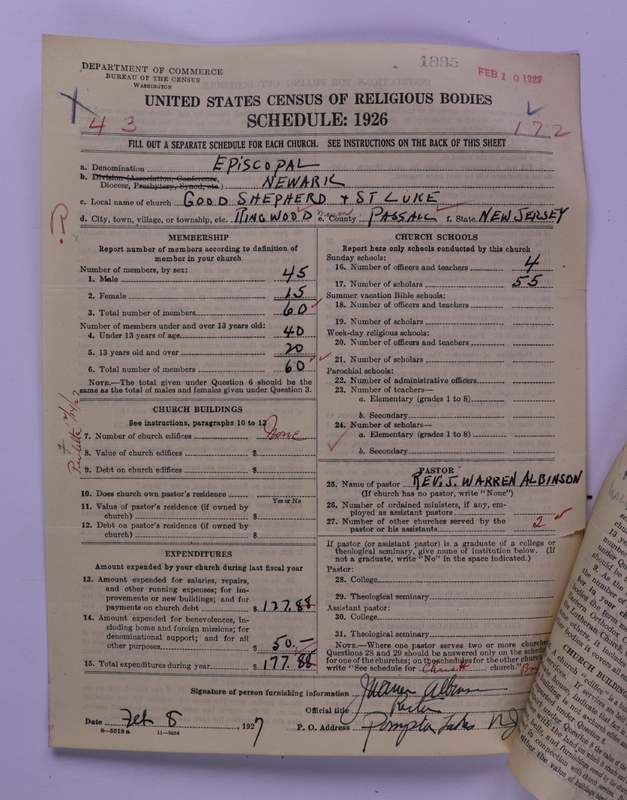 1885
FEB 10 1927
DEPARTMENT OF COMMERCE
BUREAU OF THE CENSUS
WASHINGTON
UNITED STATES CENSUS OF RELIGIOUS BODIES
SCHEDULE: 1926
43
172
FILL OUT A SEPARATE SCHEDULE FOR EACH CHURCH. SEE INSTRUCTIONS ON THE BACK OF THIS SHEET
a. Denomination EPISCOPAL
b. Division (Association, Conference,
Diocese, Presbytery, Synod, etc.) NEWARK
c. Local name of church GOOD SHEPHERD + ST LUKE
d. City, town, village, or township, etc. RINGWOOD e. County PASSAIC f. State NEW JERSEY
MEMBERSHIP
Report number of members according to definition of
member in your church
Number of members, by sex:
1. Male 45
2. Female 15
3. Total number of members 60
Number of members under and over 13 years old:
4. Under 13 years of age 40
5. 13 years old and over 20
6. Total number of members 60
NOTE.—The total given under Question 6 should be the
same as the total of males and females given under Question 3.
CHURCH BUILDINGS
See instructions, paragraphs 10 to 12
7. Number of church edifices None
8. Value of church edifices $
9. Debt on church edifices $
10. Does church own pastor's residence
Yes or No
11. Value of pastor's residence (if owned by
church) $
12. Debt on pastor's residence (if owned by
church) $
EXPENDITURES
Amount expended by your church during last fiscal year
13. Amount expended for salaries, repairs,
and other running expenses; for im-
provements or new buildings; and for
payments on church debt $ 127.88
14. Amount expended for benevolences, in-
cluding home and foreign missions; for
denominational support; and for all
other purposes $ 50.—
15. Total expenditures during year $ 177.88
CHURCH SCHOOLS
Report here only schools conducted by this church
Sunday schools:
16. Number of officers and teachers 4
17. Number of scholars 55
Summer vacation Bible schools:
18. Number of officers and teachers
19. Number of scholars
Week-day religious schools:
20. Number of officers and teachers
21. Number of scholars
Parochial schools:
22. Number of administrative officers
23. Number of teachers—
a. Elementary (grades 1 to 8)
b. Secondary
24. Number of scholars—
a. Elementary (grades 1 to 8)
b. Secondary
PASTOR
25. Name of pastor REV. J. WARREN ALBINSON
(If church has no pastor, write "None")
26. Number of ordained ministers, if any, em-
ployed as assistant pastors
27. Number of other churches served by the
pastor or his assistants 2
If pastor (or assistant pastor) is a graduate of a college or
theological seminary, give name of institution below. (If
not a graduate, write "No" in the space indicated.)
Pastor:
28. College
29. Theological seminary
Assistant pastor:
30. College
31. Theological seminary
NOTE.—Where one pastor serves two or more churches
Questions 28 and 29 should be answered only on the schedule
for one of the churches; on the schedules for the other churches
write "See schedule for Christ church."
Signature of person furnishing information J Warren Albinson
Official title Rector
Date Feb 8, 1927
P. O. Address Pompton Lakes NJ
8-5518a 11-9054